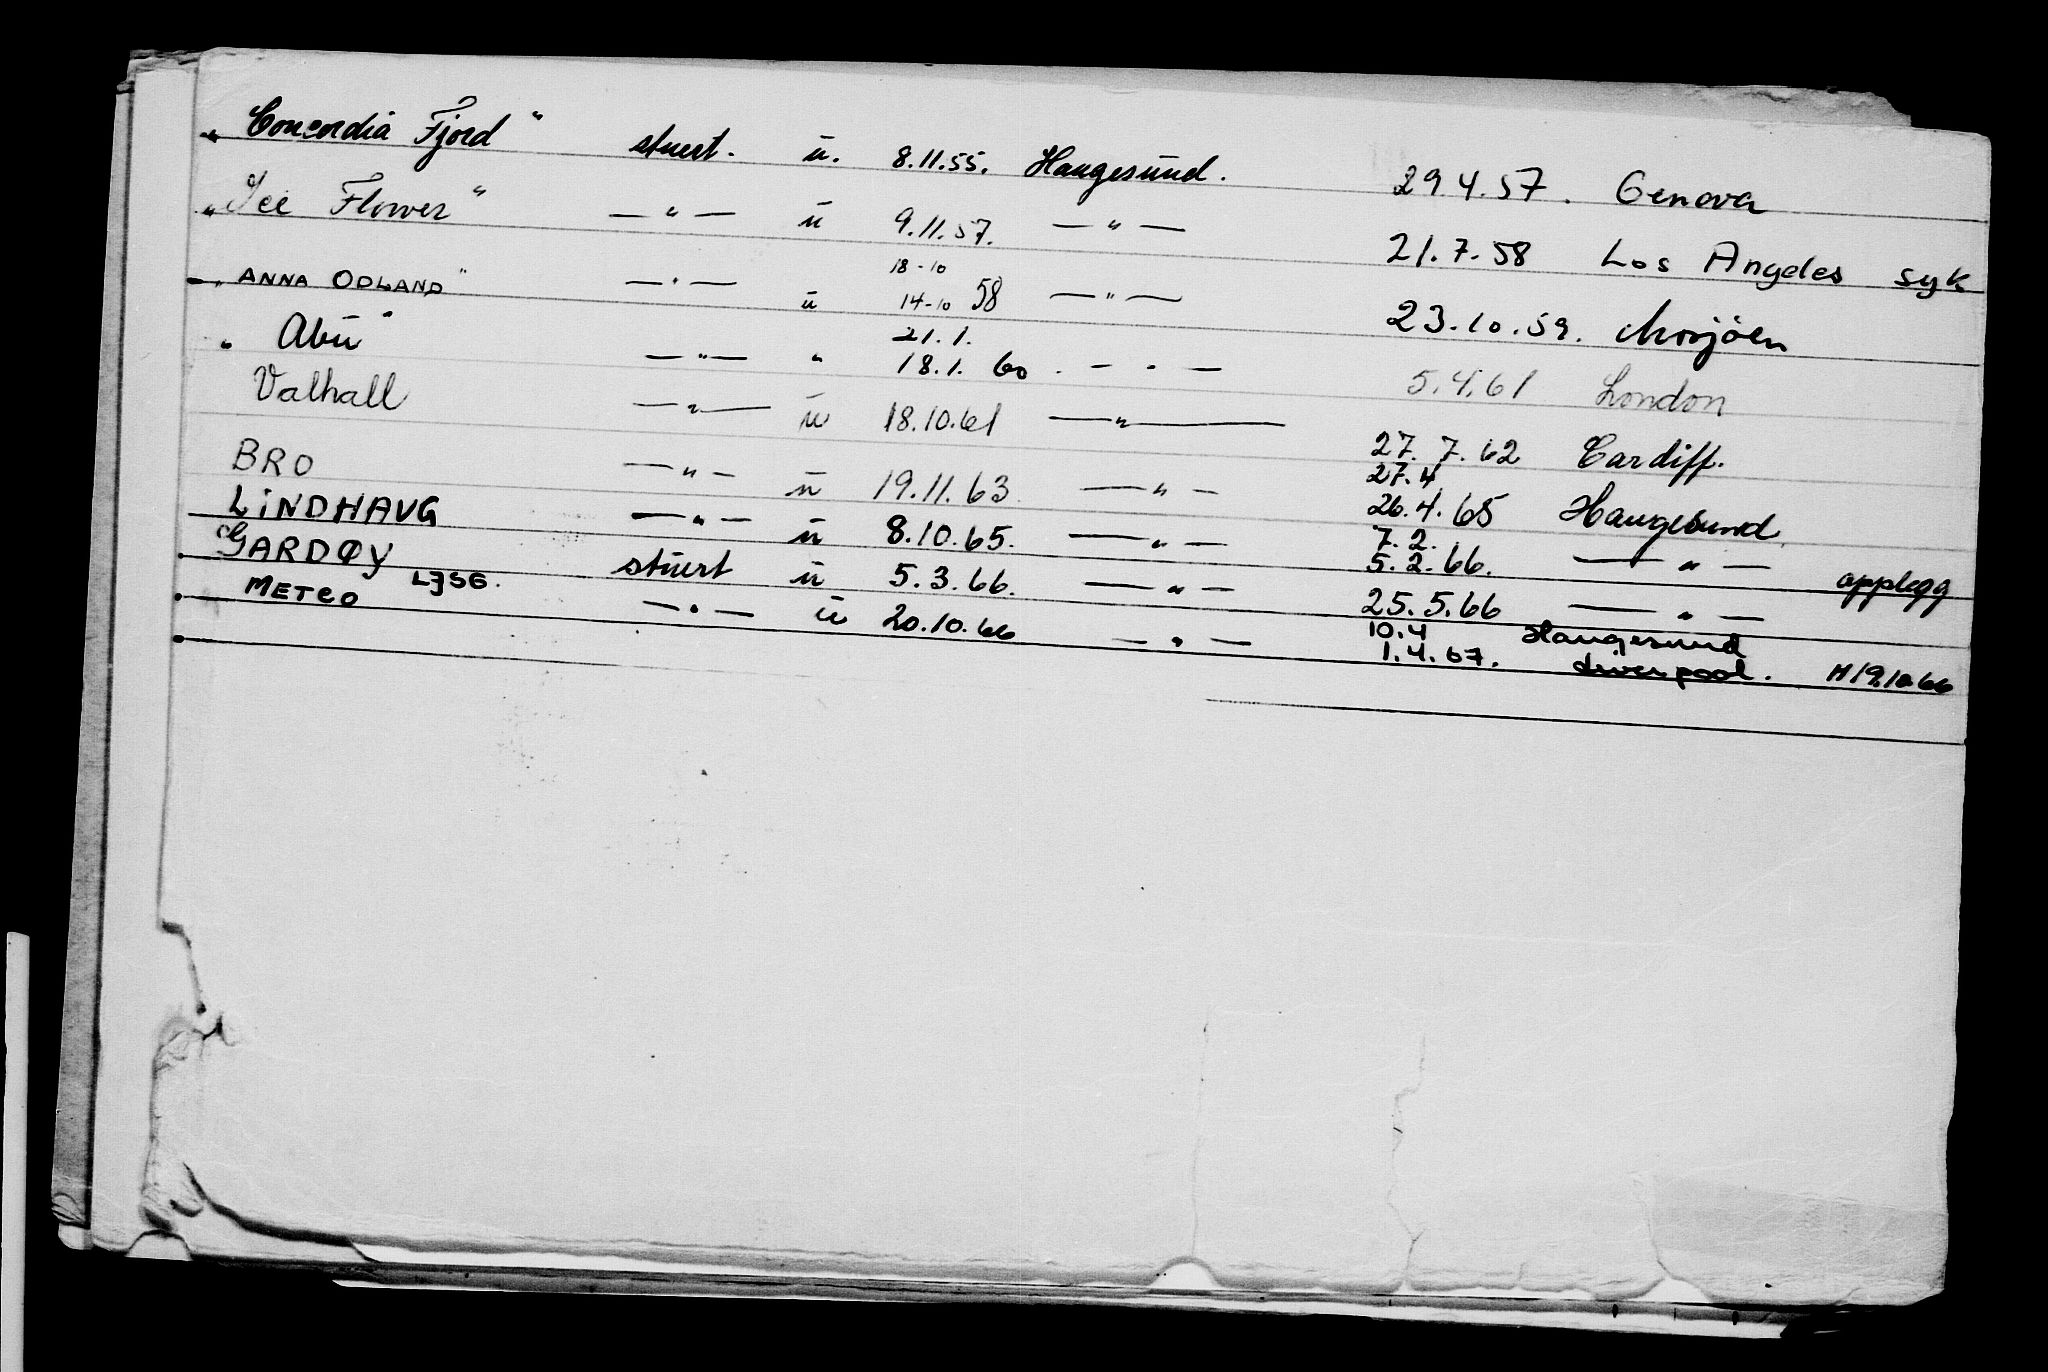 „ Concordia Fjord " stuert. ū. 8.11.55. Haugesund. 29.4.57. Genova
„ Ice Flower " — " — ū 9.11.57. — " — 21.7.58 Los Angeles syk
18-10
„ ANNA ODLAND " — " — ū 14-10 58 — " — 23.10.59. Mosjöen
21.1.
„ Abu " — " — " 18.1.60 . — " — 5.4.61 London
Valhall — " — ū 18.10.61 — " — 27.7.62 Cardiff.
27.4
BRO — " — ū 19.11.63 — " — 26.4.65 Haugesund.
7.2.
LINDHAUG — " — ū 8.10.65. — " — 5.2.66. — " — opplegg
GARDØY LJSG. stuert ū 5.3.66. — " — 25.5.66 — " —
10.4 Haugesund
METCO — " — ū 20.10.66 — " — 1.4.67. Liverpool. H 19.10.66